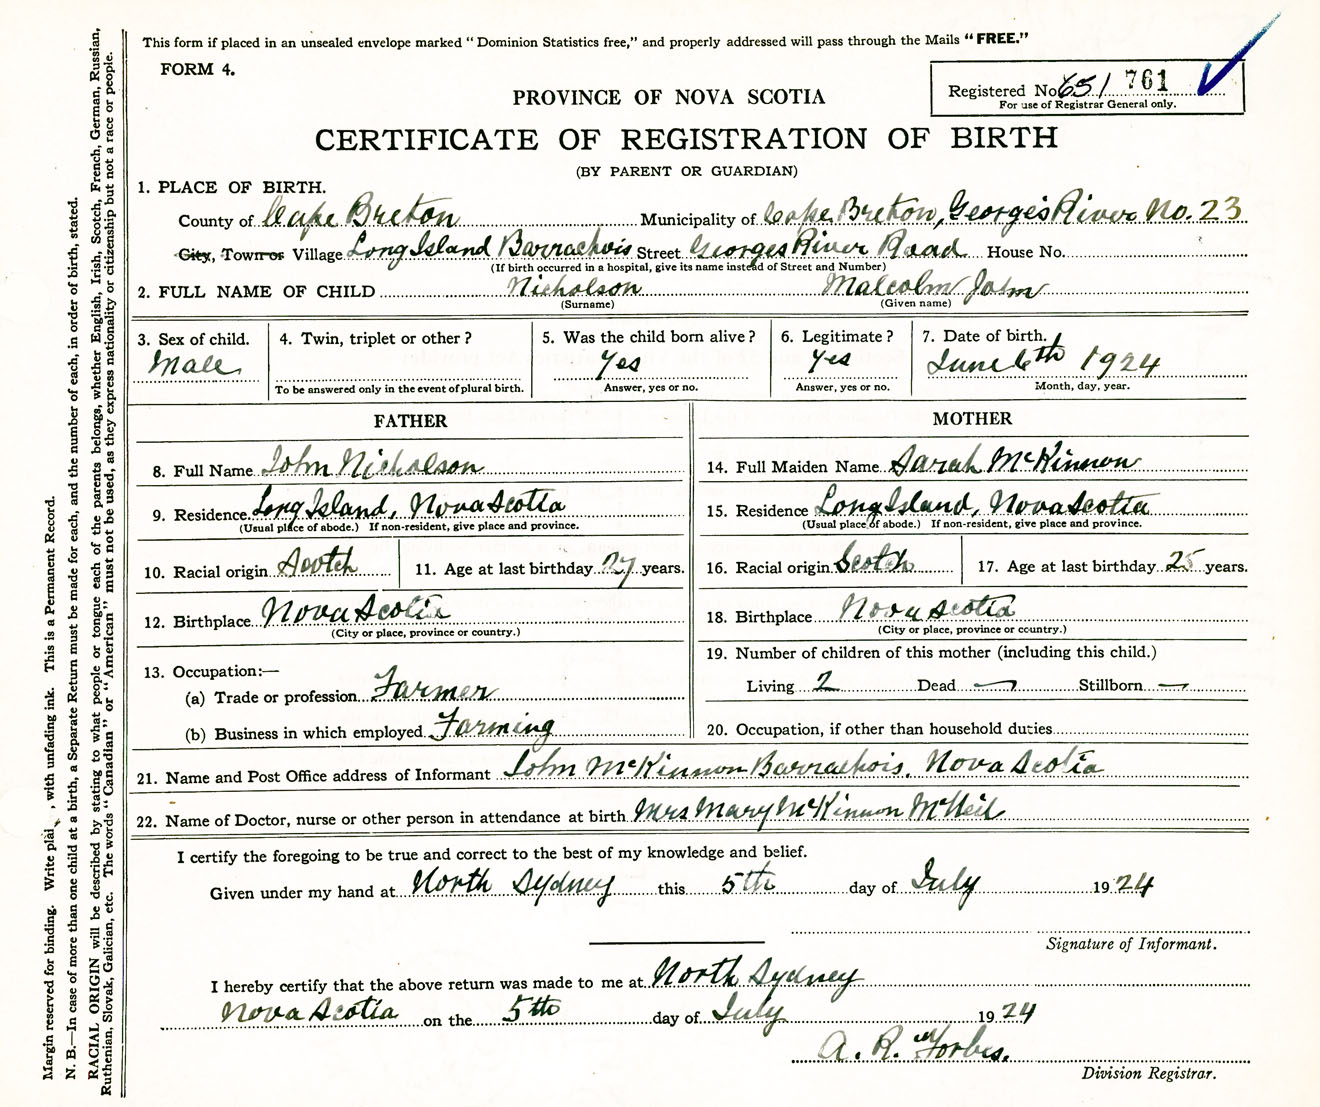 This form if placed in an unsealed envelope marked "Dominion Statistics free," and properly addressed will pass through the Mails "FREE."
FORM 4.
Registered No. 651 761
For use of Registrar General only.
PROVINCE OF NOVA SCOTIA
CERTIFICATE OF REGISTRATION OF BIRTH
(BY PARENT OR GUARDIAN)
1. PLACE OF BIRTH.
County of Cape Breton Municipality of Cape Breton, Georges River No. 23
City, Town or Village Long Island Barrachois Street Georges River Road House No.
(If birth occurred in a hospital, give its name instead of Street and Number)
2. FULL NAME OF CHILD Nicholson Malcolm John
(Surname) (Given name)
3. Sex of child. 4. Twin, triplet or other? 5. Was the child born alive? 6. Legitimate? 7. Date of birth.
Male Yes Yes June 6th 1924
To be answered only in the event of plural birth. Answer, yes or no. Answer, yes or no. Month, day, year.
FATHER MOTHER
8. Full Name John Nicholson 14. Full Maiden Name Sarah McKinnon
9. Residence Long Island, Nova Scotia 15. Residence Long Island, Nova Scotia
(Usual place of abode.) If non-resident, give place and province. (Usual place of abode.) If non-resident, give place and province.
10. Racial origin Scotch 11. Age at last birthday 27 years. 16. Racial origin Scotch 17. Age at last birthday 25 years.
12. Birthplace Nova Scotia 18. Birthplace Nova Scotia
(City or place, province or country.) (City or place, province or country.)
13. Occupation:— 19. Number of children of this mother (including this child.)
(a) Trade or profession Farmer Living 2 Dead — Stillborn —
(b) Business in which employed Farming 20. Occupation, if other than household duties
21. Name and Post Office address of Informant John McKinnon Barrachois, Nova Scotia
22. Name of Doctor, nurse or other person in attendance at birth Mrs Mary McKinnon McNeil
I certify the foregoing to be true and correct to the best of my knowledge and belief.
Given under my hand at North Sydney this 5th day of July 1924
Signature of Informant.
I hereby certify that the above return was made to me at North Sydney
Nova Scotia on the 5th day of July 1924
A. R. Forbes.
Division Registrar.
Margin reserved for binding. Write plai , with unfading ink. This is a Permanent Record.
N. B.—In case of more than one child at a birth, a Separate Return must be made for each, and the number of each, in order of birth, stated.
RACIAL ORIGIN will be described by stating to what people or tongue each of the parents belongs, whether English, Irish, Scotch, French, German, Russian,
Ruthenian, Slovak, Galician, etc. The words "Canadian" or "American" must not be used, as they express nationality or citizenship but not a race or people.